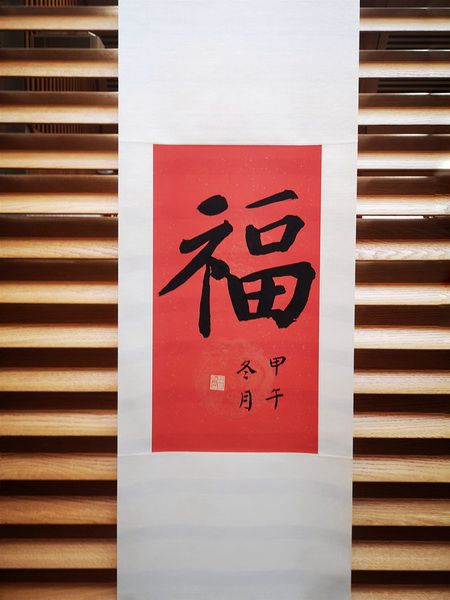 福
甲午
冬月